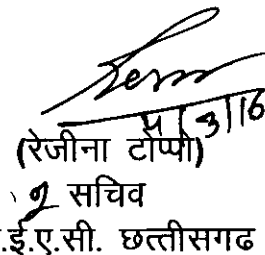 4/3/16
(रेजीना टोप्पो)
सचिव
.ई.ए.सी. छत्तीसगढ